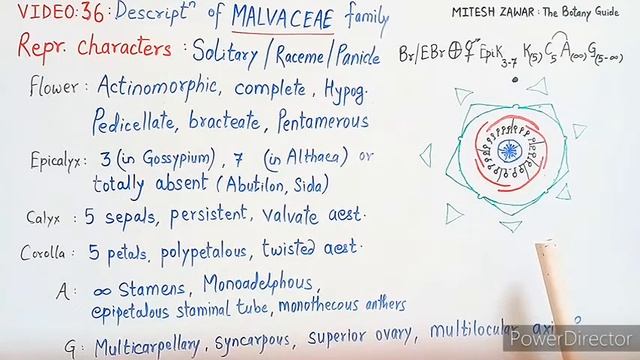 VIDEO:36: Descriptⁿ of MALVACEAE family
MITESH ZAWAR: The Botany Guide
Repr. characters: Solitary/Raceme/Panicle
Br/EBr ⊕ ⚥ EpiK₃₋₇ K₍₅₎ C₅ A₍∞₎ G₍₅₋∞₎
Flower: Actinomorphic, complete, Hypog.
Pedicellate, bracteate, Pentamerous
Epicalyx: 3 (in Gossypium), 7 (in Althaea) or
totally absent (Abutilon, Sida)
Calyx: 5 sepals, persistent, valvate aest.
Corolla: 5 petals, polypetalous, twisted aest.
A: ∞ Stamens, Monoadelphous,
epipetalous staminal tube, monothecous anthers
G: Multicarpellary, syncarpous, superior ovary, multilocular,
PowerDirector